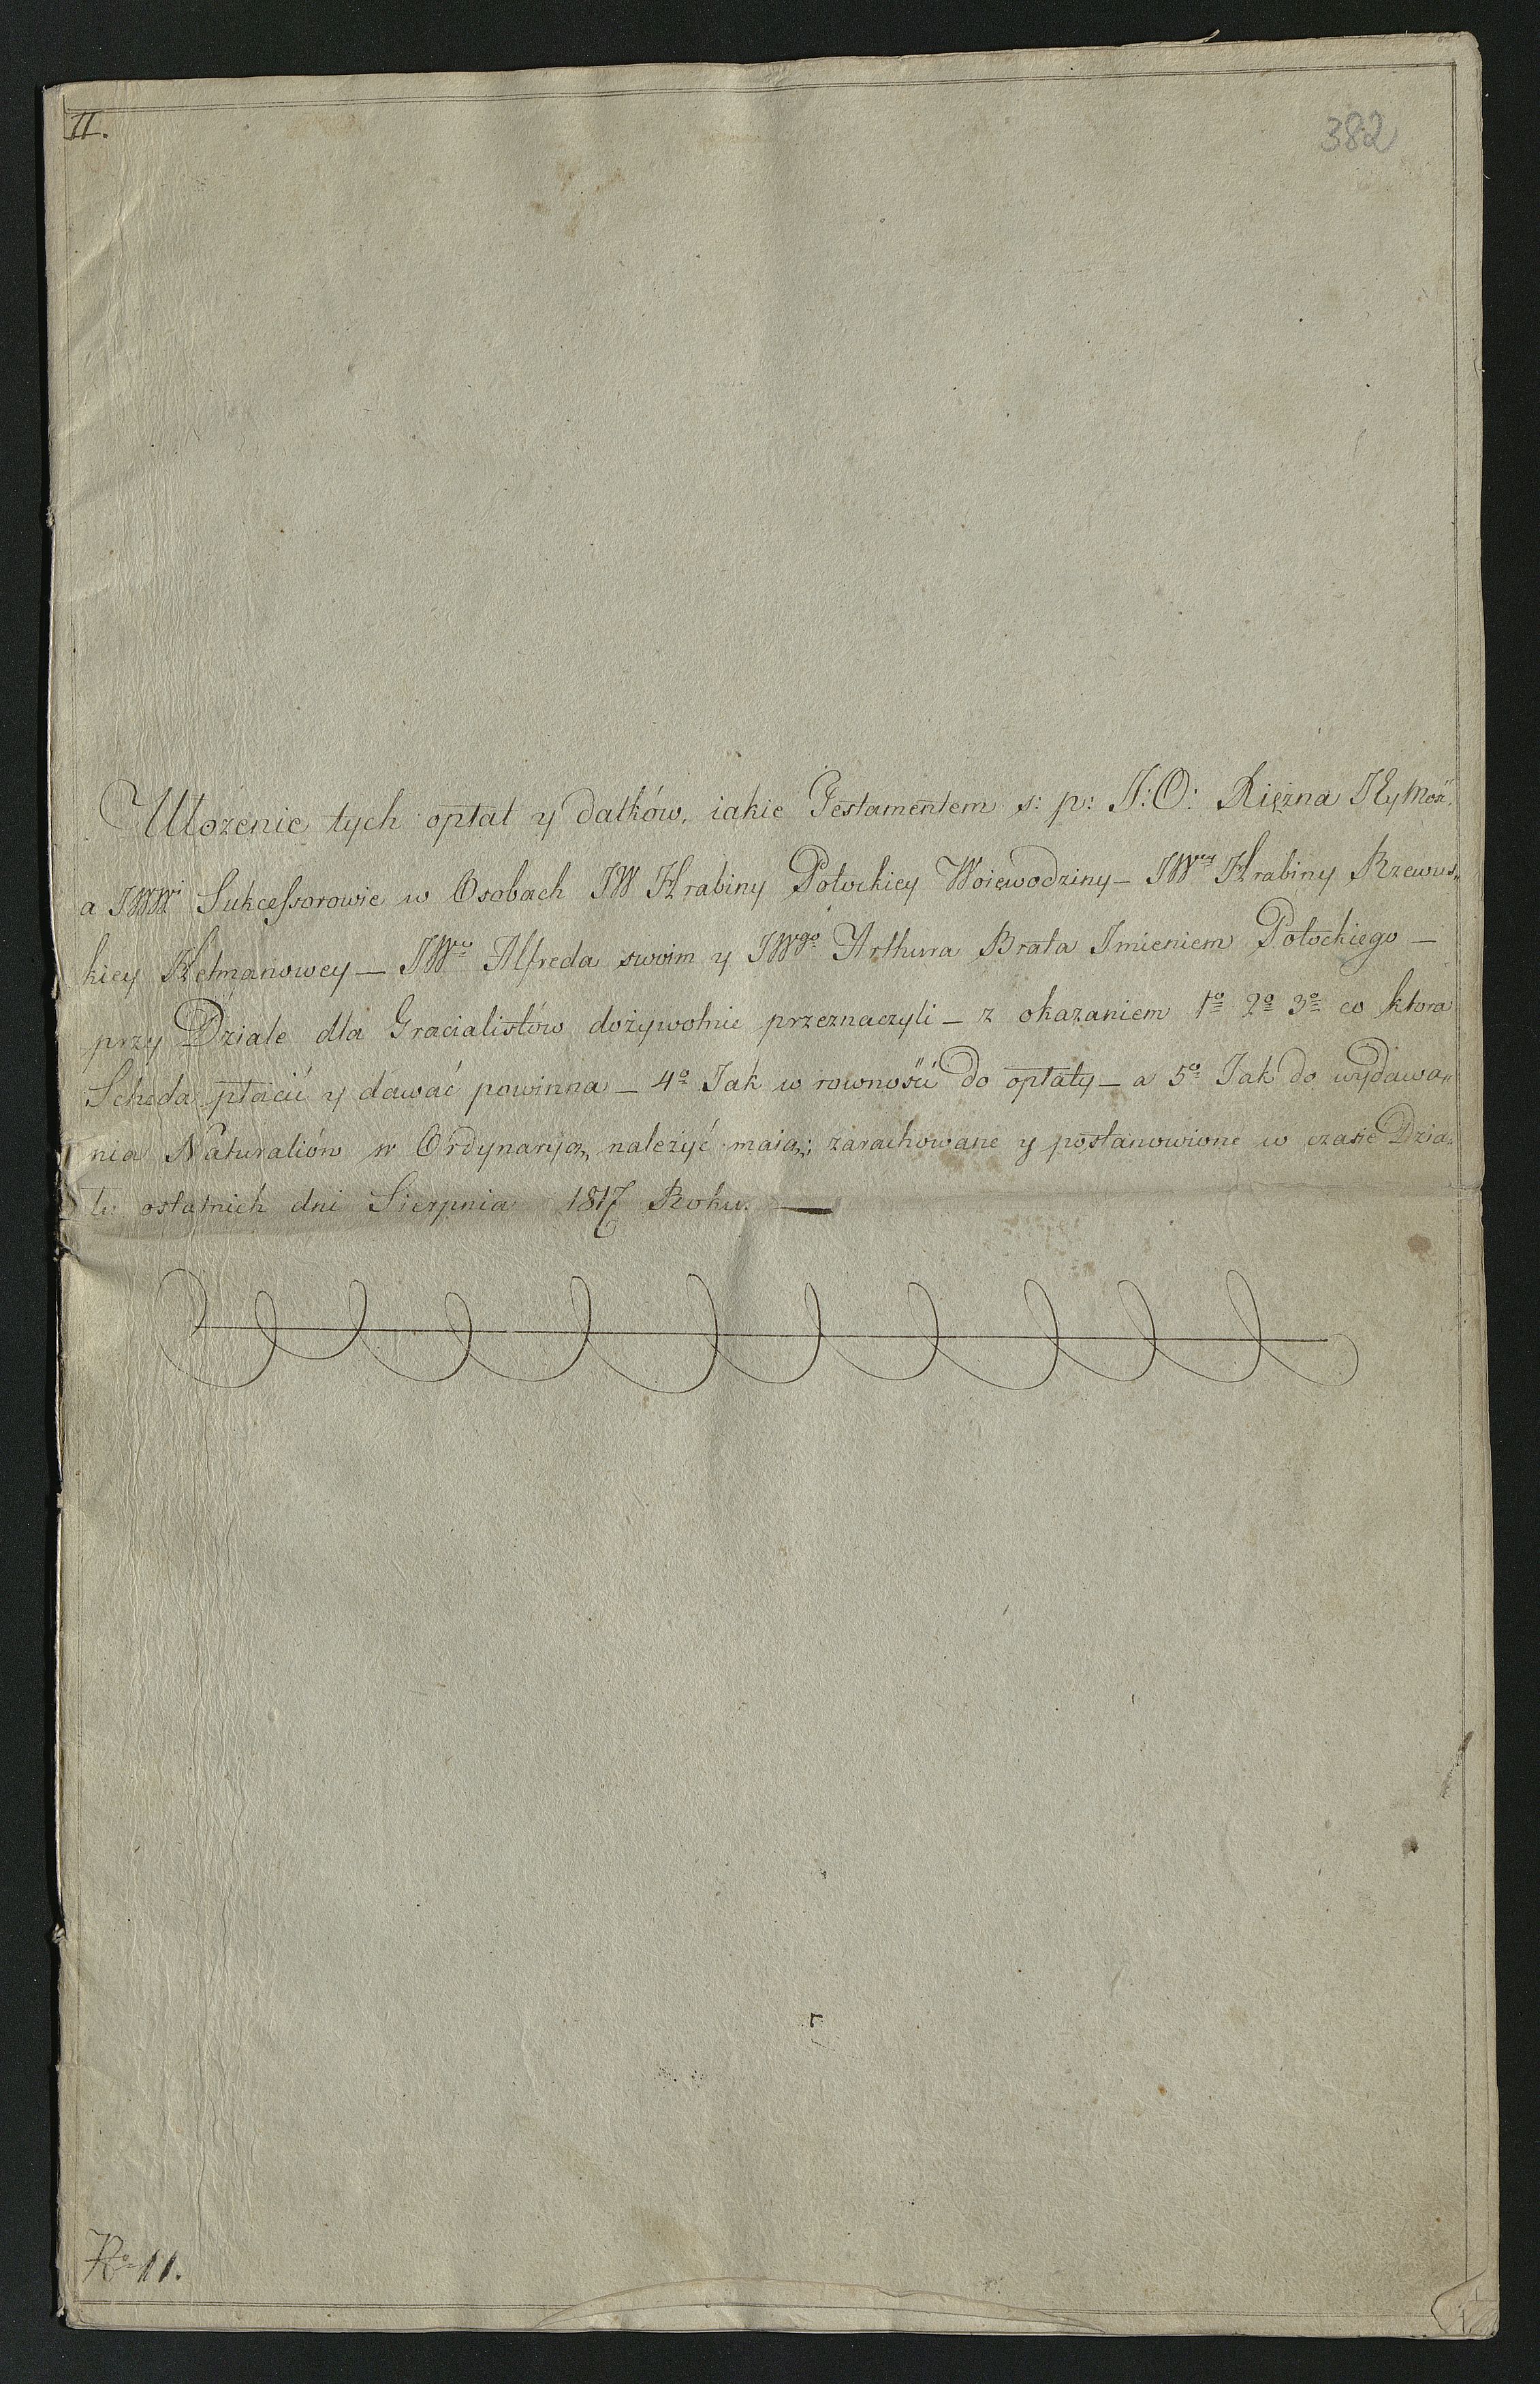 II.
382
Ułozenie tych opłat y datków, iakie Testamentem s: p: J: O: Xiężna
a JWWi Sukcessorowie w Osobach JW Hrabiny Potockiey Woiewodziny – JWney Hrabiny Rzewus„
kiey Hetmanowey – JWni Alfreda swoim y JWgo Arthura Brata Imieniem Potockiego –
przy Dziale dla Gracialistów dożywotnie przeznaczyli – z okazaniem 1o 2o 3o co ktora
Scheda płacić y dawać powinna – 4o Jak w rowności do opłaty – a 5o Jak do wydawa„
nia Naturaliów w Ordynaryą, należyć maią; zarachowane y postanowione w czasie Dzia„
łu ostatnich dni Sierpnia 1817 Roku. —
No 11.